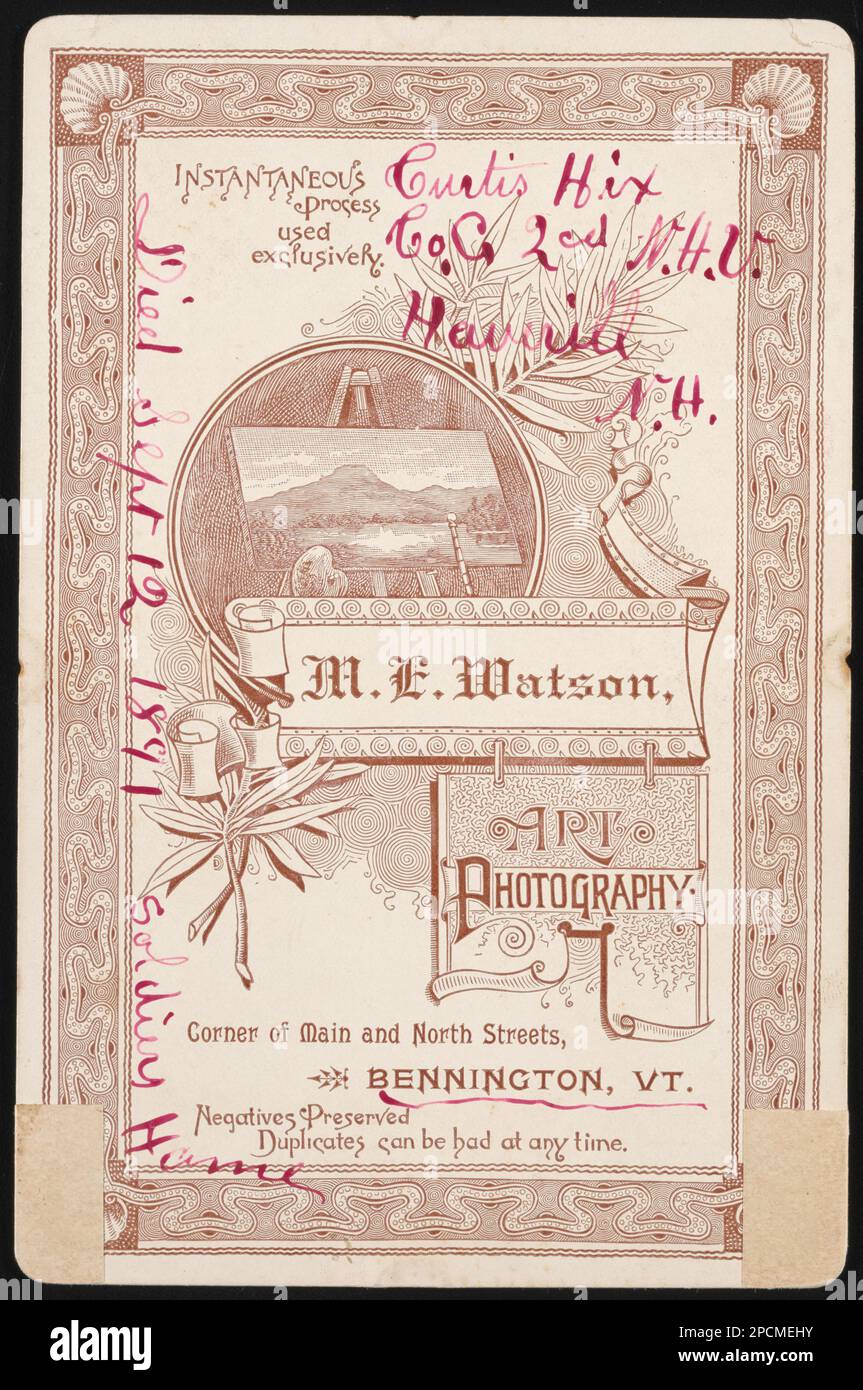 INSTANTANEOUS
Process
used
exclusively.
Curtis Hix
Co. C. 2nd N.H.V.
Haverill
N.H.
Died Sept 12 1891 Soldiers Home
M. E. Watson,
ART
PHOTOGRAPHY.
Corner of Main and North Streets,
BENNINGTON, VT.
Negatives Preserved
Duplicates can be had at any time.
alamy
Image ID: 2PCMEHY
www.alamy.com